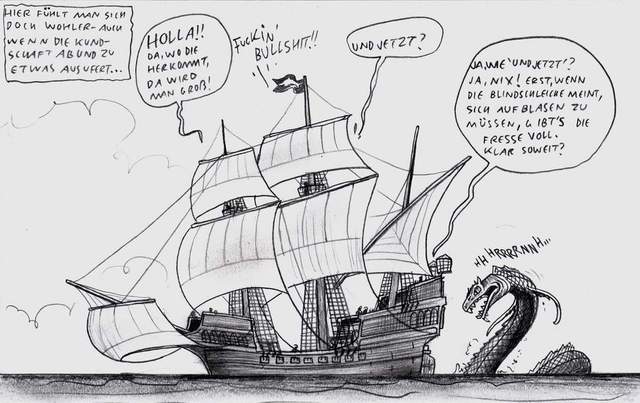 HIER FÜHLT MAN SICH
DOCH WOHLER-AUCH
WENN DIE KUND-
SCHAFT AB UND ZU
ETWAS AUSUFERT...
HOLLA!!
DA, WO DIE
HERKOMMT,
DA WIRD
MAN GROß!
FUCKIN'
BULLSHIT!!
UND JETZT?
JA, WIE 'UND JETZT'?
JA, NIX! ERST, WENN
DIE BLINDSCHLEICHE MEINT,
SICH AUFBLASEN ZU
MÜSSEN, GIBT'S DIE
FRESSE VOLL.
KLAR SOWEIT?
HHHRRRRNNH...